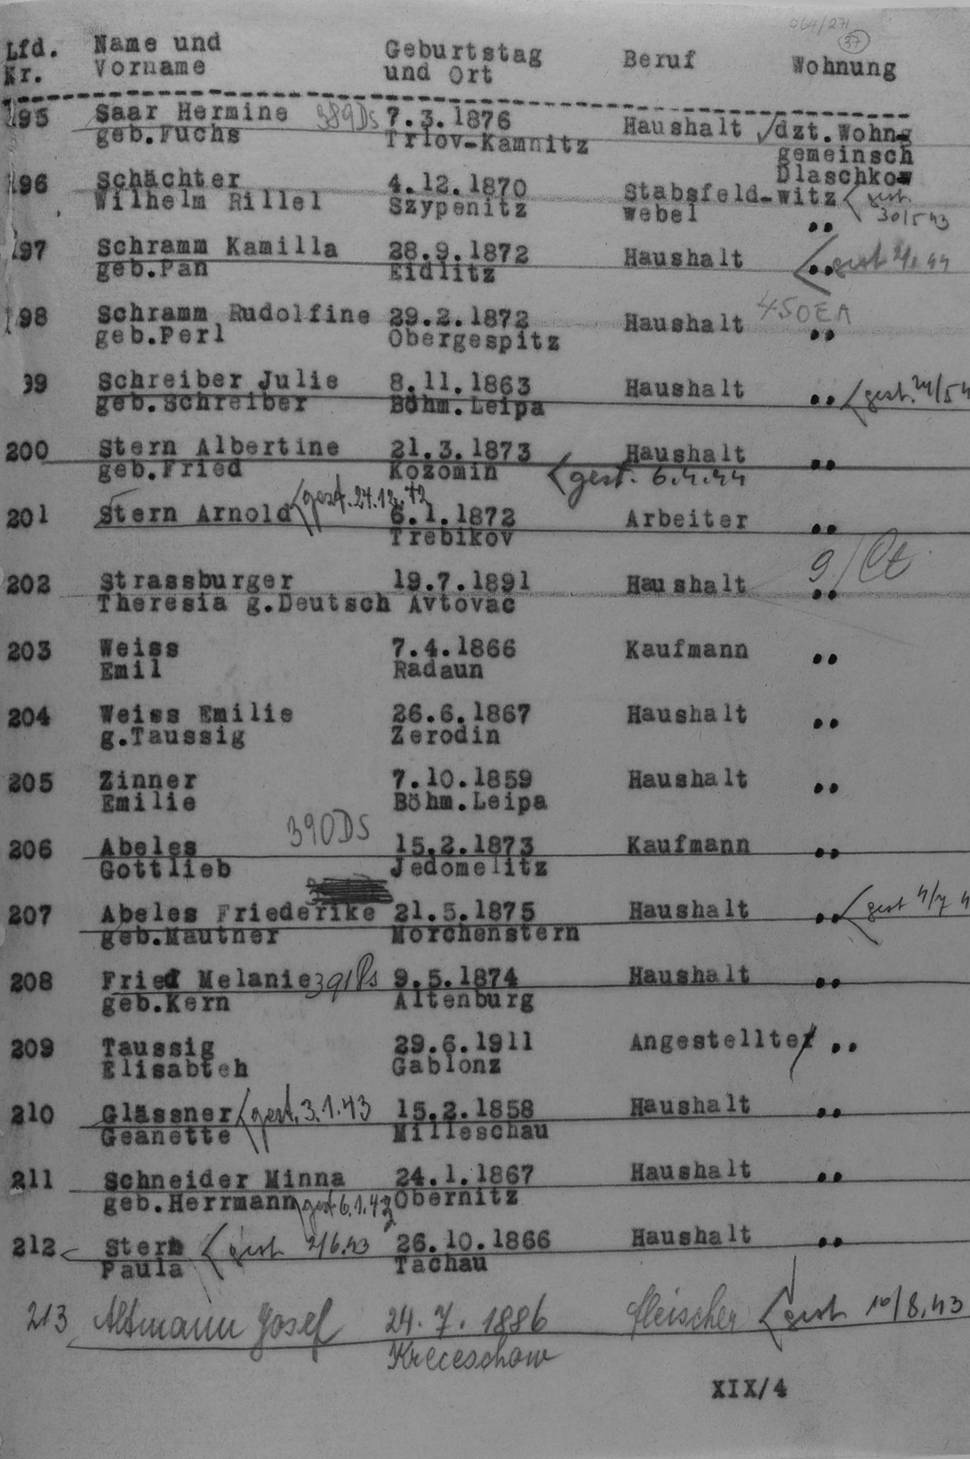 064/271
37
Lfd. Name und Geburtstag Beruf Wohnung
Nr. Vorname und Ort
195 Saar Hermine 389Ds 7.3.1876 Haushalt dzt.Wohng
geb.Fuchs Trlov-Kamnitz gemeinsch
Blaschkow
196 Schächter 4.12.1870 Stabsfeld-witz gest.
Wilhelm Rillel Szypenitz webel ,, 30/5 43
197 Schramm Kamilla 28.9.1872 Haushalt ,, gest
geb.Pan Eidlitz
198 Schramm Rudolfine 29.2.1872 Haushalt 450EA
geb.Perl Obergespitz ,,
99 Schreiber Julie 8.11.1863 Haushalt ,, gest.
geb.Schreiber Böhm.Leipa
200 Stern Albertine 21.3.1873 Haushalt ,,
geb.Fried Kozomin gest. 6.4.44
201 Stern Arnold gest.24.12.42 6.1.1872 Arbeiter ,,
Trebikov
202 Strassburger 19.7.1891 Haushalt 9/Ct
Theresia g.Deutsch Avtovac ,,
203 Weiss 7.4.1866 Kaufmann ,,
Emil Radaun
204 Weiss Emilie 26.6.1867 Haushalt ,,
g.Taussig Zerodin
205 Zinner 7.10.1859 Haushalt ,,
Emilie Böhm.Leipa
390DS
206 Abeles 15.2.1873 Kaufmann ,,
Gottlieb Jedomelitz
207 Abeles Friederike 21.5.1875 Haushalt ,, gest 4/7 4
geb.Mautner Morchenstern
208 Fried Melanie 391Ds 9.5.1874 Haushalt ,,
geb.Kern Altenburg
209 Taussig 29.6.1911 Angestellte ,,
Elisabteh Gablonz
210 Glässner gest.3.1.43 15.2.1858 Haushalt ,,
Geanette Milleschau
211 Schneider Minna 24.1.1867 Haushalt ,,
geb.Herrmann gest 6.1.43 Obernitz
212 Stern gest 2/6.43 26.10.1866 Haushalt ,,
Paula Tachau
213 Altmann Josef 24.7.1886 fleischer gest 10/8.43
Kreceschow
XIX/4